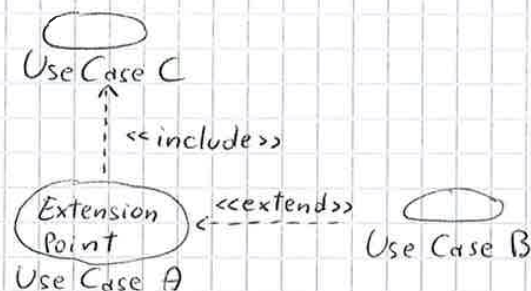 Use Case C
<<include>>
Extension
Point
<<extend>>
Use Case A
Use Case B